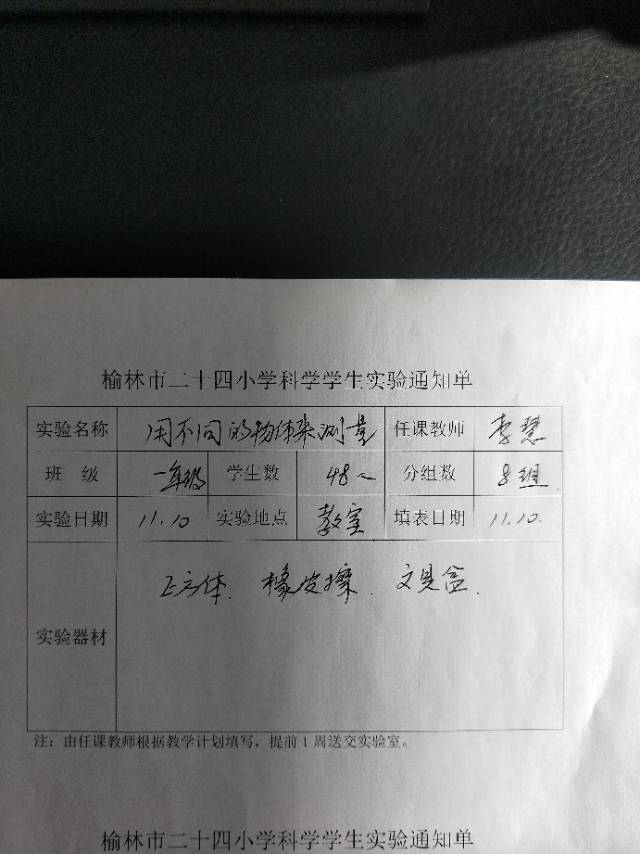 榆林市二十四小学科学学生实验通知单
实验名称 用不同的物体来测量 任课教师 李慧
班 级 一年级 学生数 48人 分组数 8组
实验日期 11.10 实验地点 教室 填表日期 11.10.
实验器材 正方体. 橡皮擦. 文具盒.
注：由任课教师根据教学计划填写，提前1周送交实验室。
榆林市二十四小学科学学生实验通知单